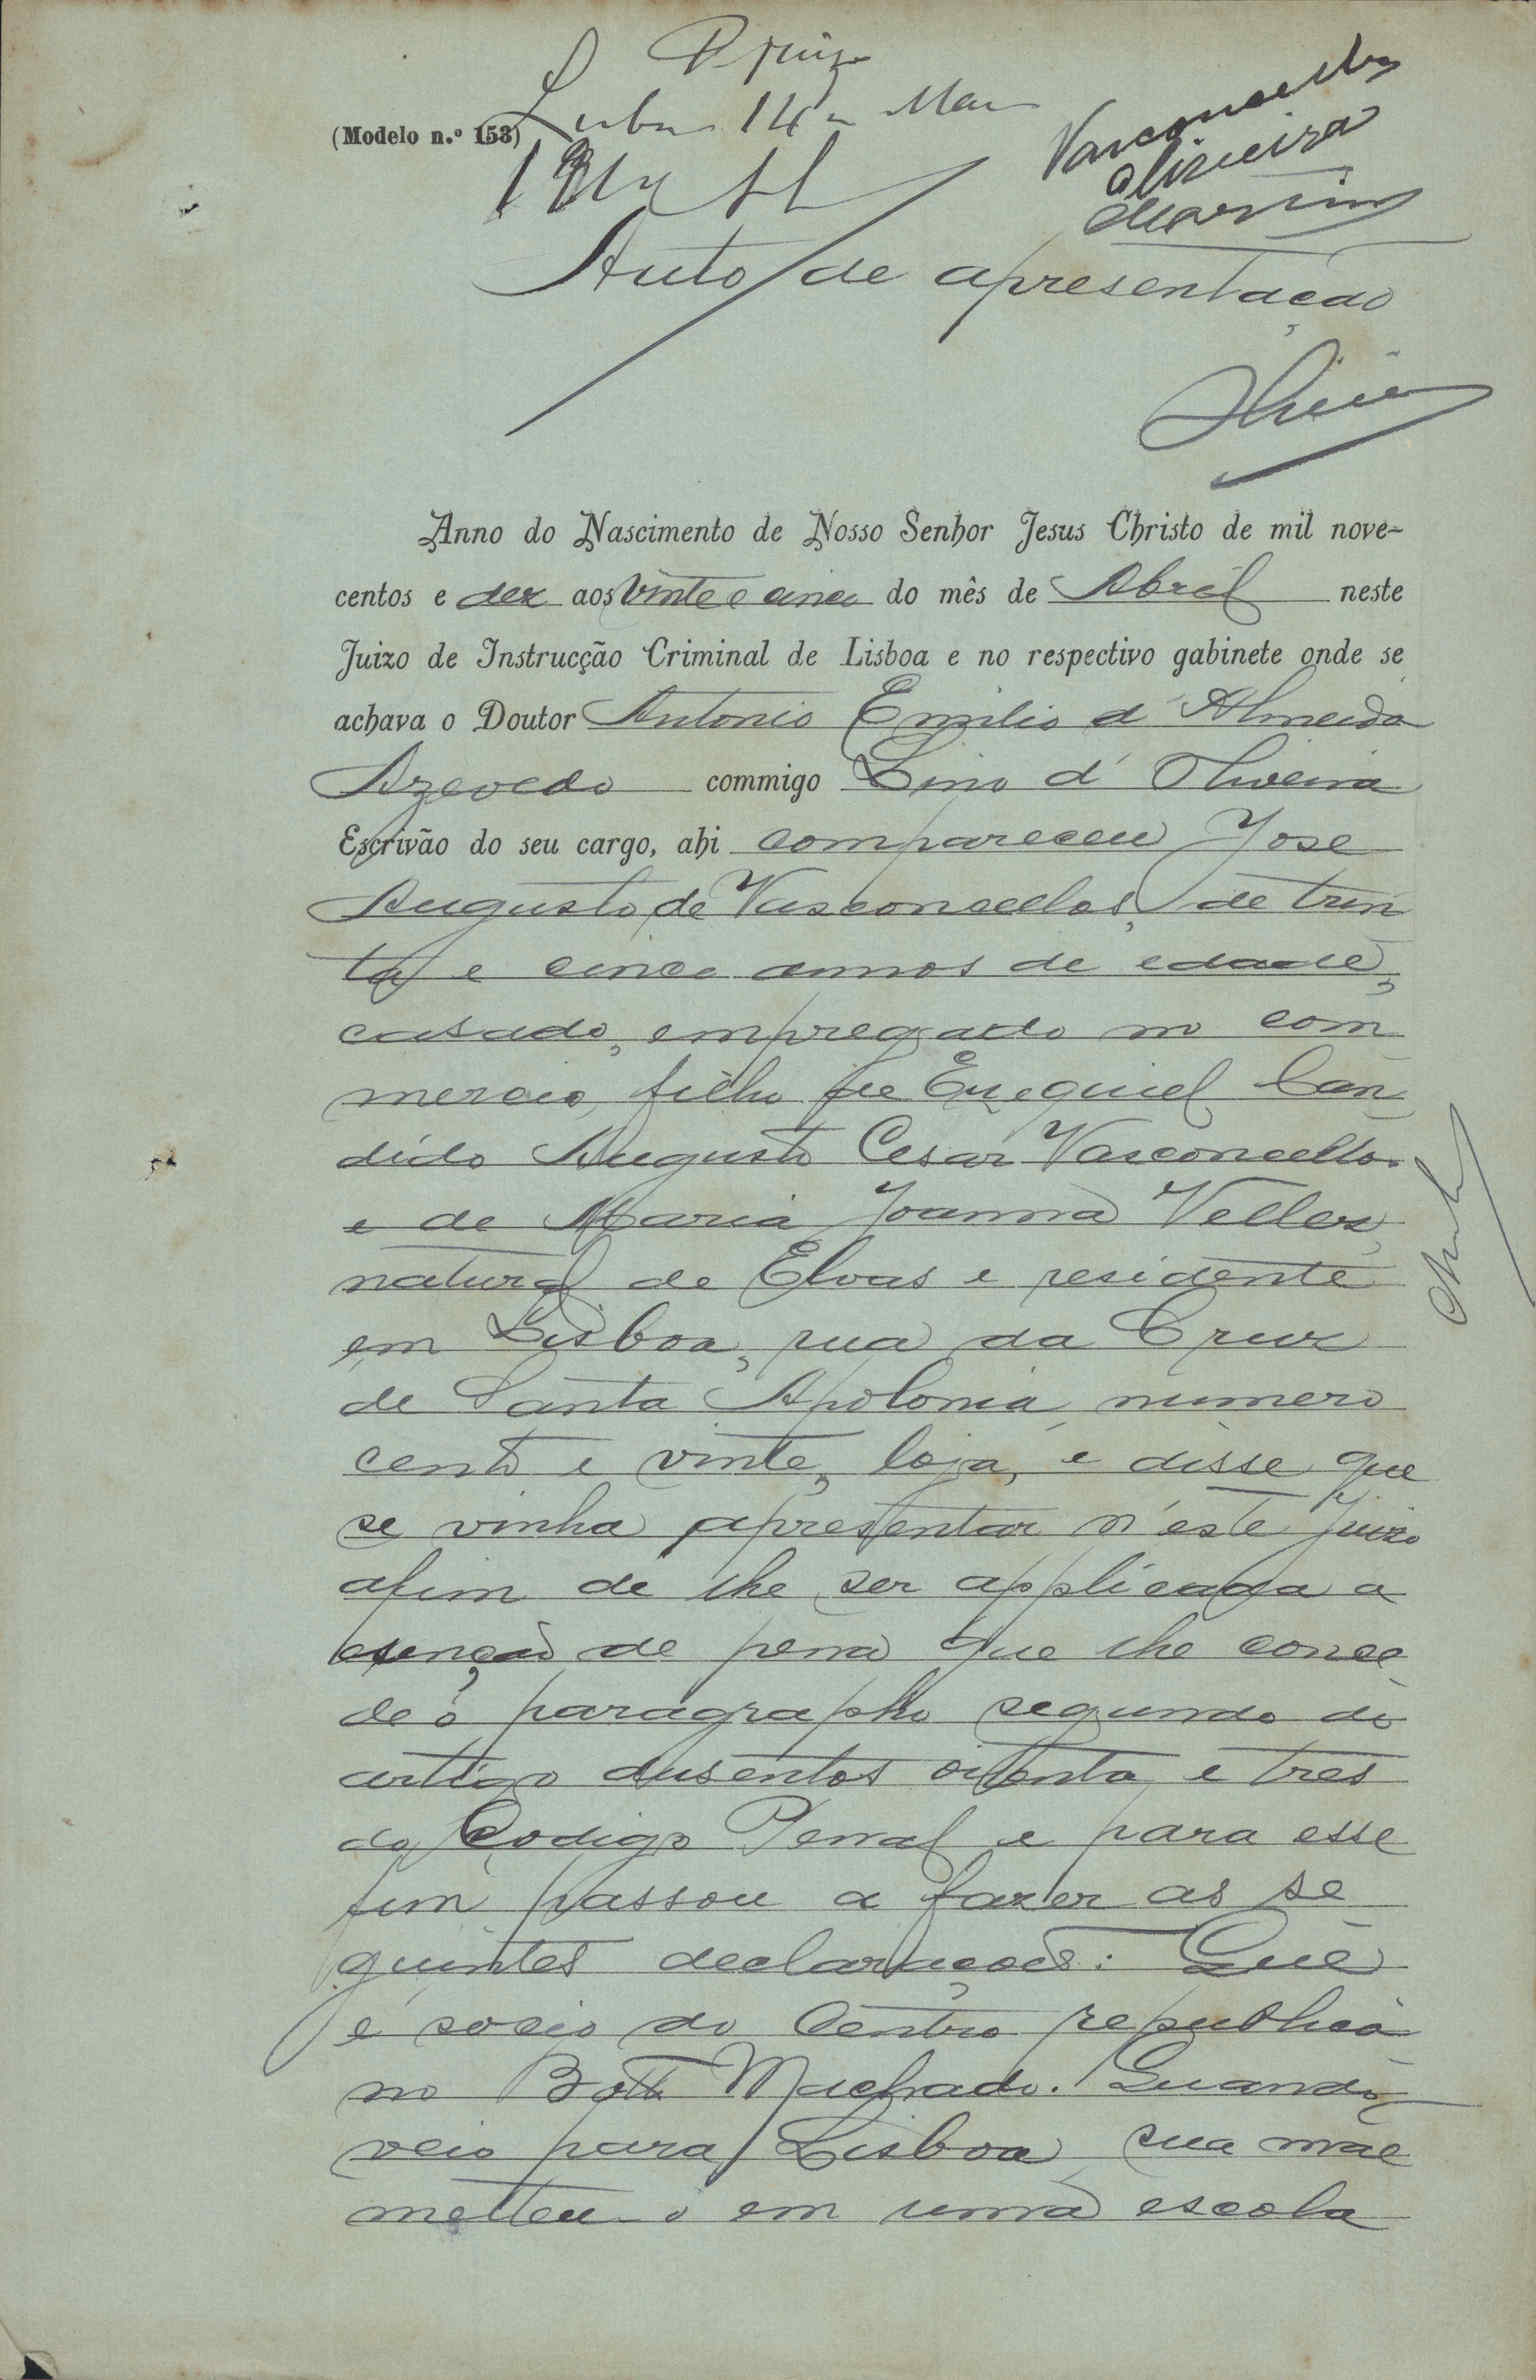 14
Vasconcellos
Oliveira
Martins
(Modelo n.º 153)
Auto de apresentação
Anno do Nascimento de Nosso Senhor Jesus Christo de mil nove-
centos e dez aos vinte e cinco do mês de Abril neste
Juizo de Instrucção Criminal de Lisboa e no respectivo gabinete onde se
achava o Doutor Antonio Emilio d'Almeida
Azevedo commigo Lino d'Oliveira
Escrivão do seu cargo, ahi compareceu Jose
Augusto de Vasconcellos, de trin
ta e cinco annos de edade,
casado, empregado no com
mercio, filho de Ezequiel Can
dido Augusto Cesar Vasconcellos
e de Maria Joanna Vellez,
natural de Elvas e residente
em Lisboa, rua da Cruz
de Santa Apolonia, numero
cento e vinte, loja, e disse que
se vinha apresentar n'este juizo
afim de lhe ser applicada a
isenção de pena que lhe conce
de o paragrapho segundo do
artigo dusentos oitenta e tres
do Codigo Penal e para esse
fim passou a fazer as se
guintes declarações: Que
é socio do Centro republica
no Botto Machado. Quando
veio para Lisboa, sua mãe
metteu-o em uma escola